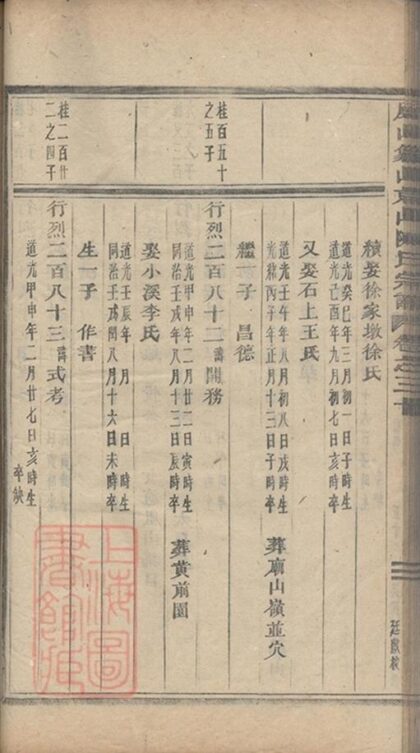 續娶徐家墩徐氏
道光癸巳年三月初一日子時生
光緒己酉年九月初七日亥時卒
又娶石上王氏
道光壬午年八月初八日戌時生
光緒丙子年正月十三日子時卒
葬廟山嶺並穴
繼一子 昌德
桂百五十
之五子
行烈二百八十二諱開務
道光甲申年二月廿二日寅時生
同治壬戌年八月十三日辰時卒
葬黄前園
娶小溪李氏
道光壬辰年 月 日 時生
同治壬戌閏八月十六日未時卒
生一子 作書
桂二百廿
二之四子
行烈二百八十三諱式考
道光甲申年二月廿七日亥時生
卒缺
上海圖
書館藏